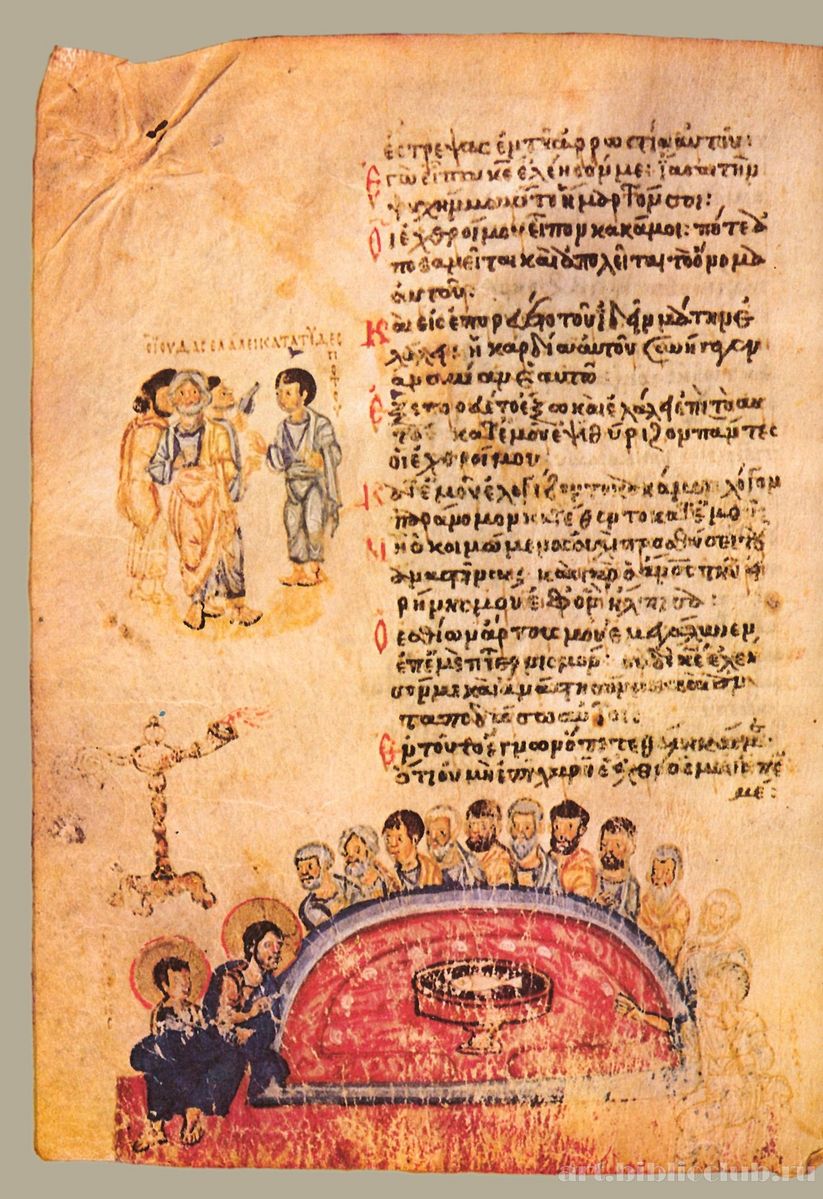 ἔστρεψας ἐν τῆ ἀρρωστία αὐτοῦ:
Ἐγὼ εἶπα κε ἐλέησόν με: ἴασαι τὴν
ψυχήν μου ὅτι ἥμαρτόν σοι:
Οἱ ἐχθροί μου εἶπον κακά μοι: πότε ἀ
ποθανεῖται καὶ ἀπολεῖται τὸ ὄνομα
αὐτοῦ:
Καὶ εἰσεπορεύετο τοῦ ἰδεῖν μάτην ἐ
λάλει: ἡ καρδία αὐτοῦ συνήγαγεν
ἀνομίαν ἑαυτῶ
Ἐξεπορεύετο ἔξω καὶ ἐλάλει ἐπὶ τὸ αυ
τό κατ ἐμοῦ ἐψιθύριζον πάντες
οἱ ἐχθροί μου
Κατ ἐμοῦ ἐλογίζοντο κακά μοι λόγον
παράνομον κατέθεντο κατ ἐμοῦ
Μὴ ὁ κοιμώμενος οὐχὶ προσθήσει τοῦ
ἀναστῆναι; καὶ γὰρ ὁ ἄνος τῆς εἰ
ρήνης μου ἐφ ὃν ἤλπισα:
Ὁ ἐσθίων ἄρτους μου ἐμεγάλυνεν
ἐπ ἐμὲ πτερνισμόν: σὺ δὲ κε ἐλέη
σόν με καὶ ἀνάστησόν με καὶ ἀν
ταποδώσω αὐτοῖς:
Ἐν τούτω ἔγνων ὅτι τεθέληκάς με
ὅτι οὐ μὴ ἐπιχαρῆ ὁ ἐχθρός μου ἐπ
ἐμέ:
ΟΙΟΥΔΑΣ ΕΛΑΛΕΙ ΚΑΤΑ ΤΟΥ ΔΕΣ
ΠΟΤΟΥ
art.biblioclub.ru